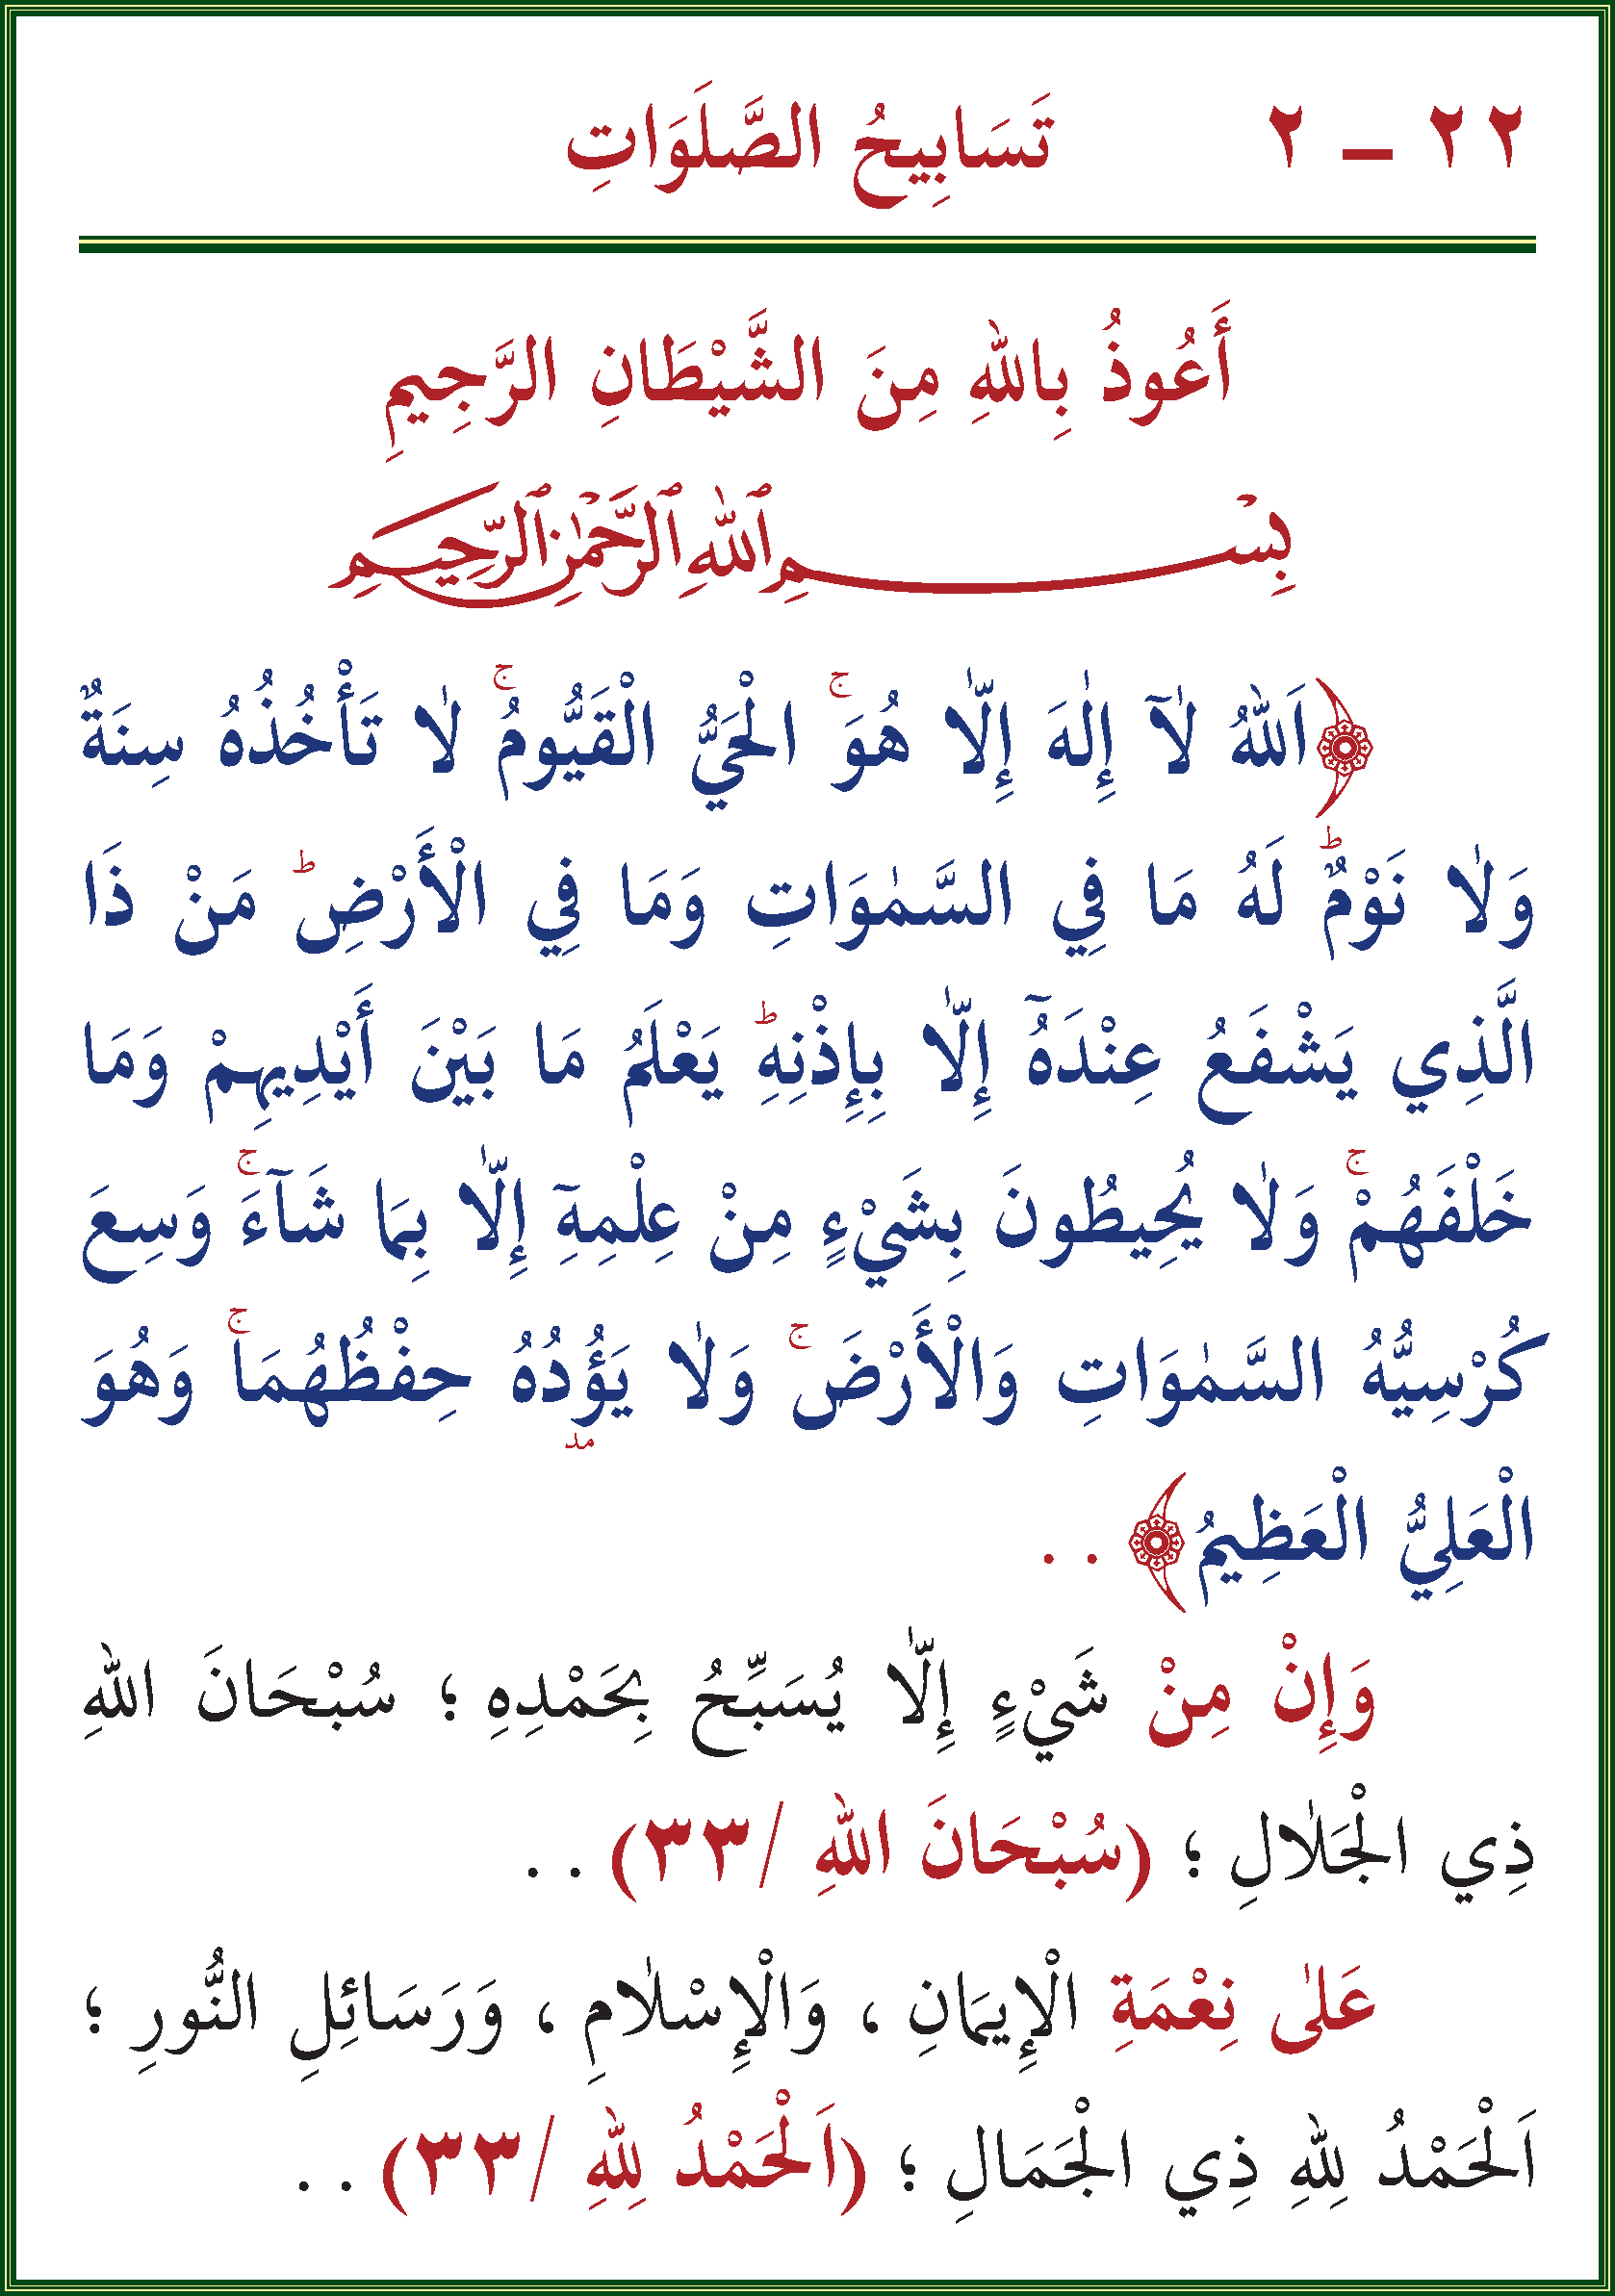 ٢٢ – ٢ تَسَابِيحُ الصَّلَوَاتِ
أَعُوذُ بِاللهِ مِنَ الشَّيْطَانِ الرَّجِيمِ
بِسْمِ ٱللهِ ٱلرَّحْمٰنِ ٱلرَّحِيمِ
﴿اَللهُ لَآ إِلٰهَ إِلَّا هُوَ ۚ الْحَيُّ الْقَيُّومُ ۚ لَا تَأْخُذُهُ سِنَةٌ
وَلَا نَوْمٌ ؕ لَهُ مَا فِي السَّمٰوَاتِ وَمَا فِي الْأَرْضِ ؕ مَنْ ذَا
الَّذِي يَشْفَعُ عِنْدَهُٓ إِلَّا بِإِذْنِهِ ؕ يَعْلَمُ مَا بَيْنَ أَيْدِيهِمْ وَمَا
خَلْفَهُمْ ۚ وَلَا يُحِيطُونَ بِشَيْءٍ مِنْ عِلْمِهِٓ إِلَّا بِمَا شَآءَ ۚ وَسِعَ
كُرْسِيُّهُ السَّمٰوَاتِ وَالْأَرْضَ ۚ وَلَا يَؤُدُهُ حِفْظُهُمَا ۚ وَهُوَ
مد
الْعَلِيُّ الْعَظِيمُ﴾ . .
وَإِنْ مِنْ شَيْءٍ إِلَّا يُسَبِّحُ بِحَمْدِهِ ؛ سُبْحَانَ اللهِ
ذِي الْجَلَالِ ؛ (سُبْحَانَ اللهِ /٣٣) . .
عَلٰى نِعْمَةِ الْإِيمَانِ ، وَالْإِسْلَامِ ، وَرَسَائِلِ النُّورِ ؛
اَلْحَمْدُ لِلهِ ذِي الْجَمَالِ ؛ (اَلْحَمْدُ لِلهِ /٣٣) . .